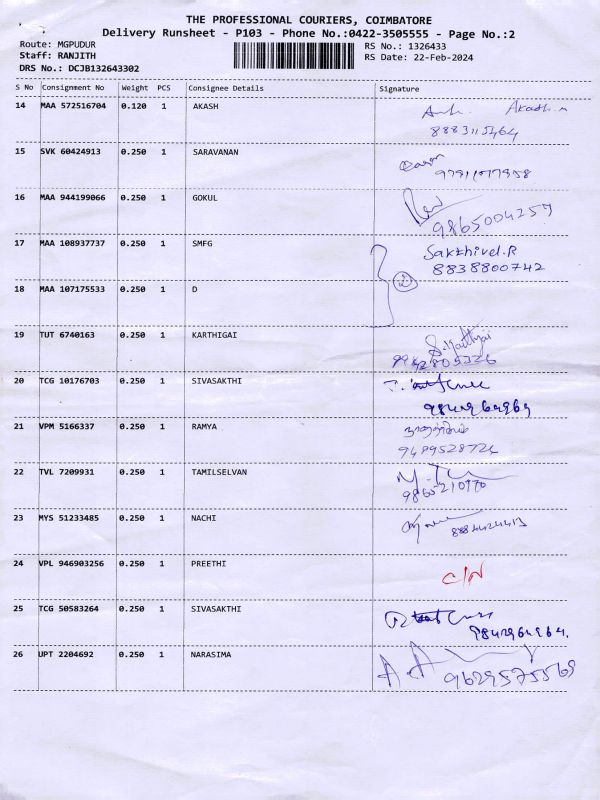 THE PROFESSIONAL COURIERS, COIMBATORE
Delivery Runsheet - P103 - Phone No.:0422-3505555 - Page No.:2
Route: MGPUDUR
RS No.: 1326433
Staff: RANJITH
RS Date: 22-Feb-2024
DRS No.: DCJB132643302
S No Consignment No Weight PCS Consignee Details Signature
14 MAA 572516704 0.120 1 AKASH Akash.m
15 SVK 60424913 0.250 1 SARAVANAN
16 MAA 944199066 0.250 1 GOKUL
9865004257
17 MAA 108937737 0.250 1 SMFG Sakthivel.R
8838800742
18 MAA 107175533 0.250 1 D 2
19 TUT 6740163 0.250 1 KARTHIGAI S.Karthigai
9942805326
20 TCG 10176703 0.250 1 SIVASAKTHI
21 VPM 5166337 0.250 1 RAMYA
9489528724
22 TVL 7209931 0.250 1 TAMILSELVAN
23 MYS 51233485 0.250 1 NACHI
24 VPL 946903256 0.250 1 PREETHI C/N
25 TCG 50583264 0.250 1 SIVASAKTHI
9842964964.
26 UPT 2204692 0.250 1 NARASIMA
9629575569